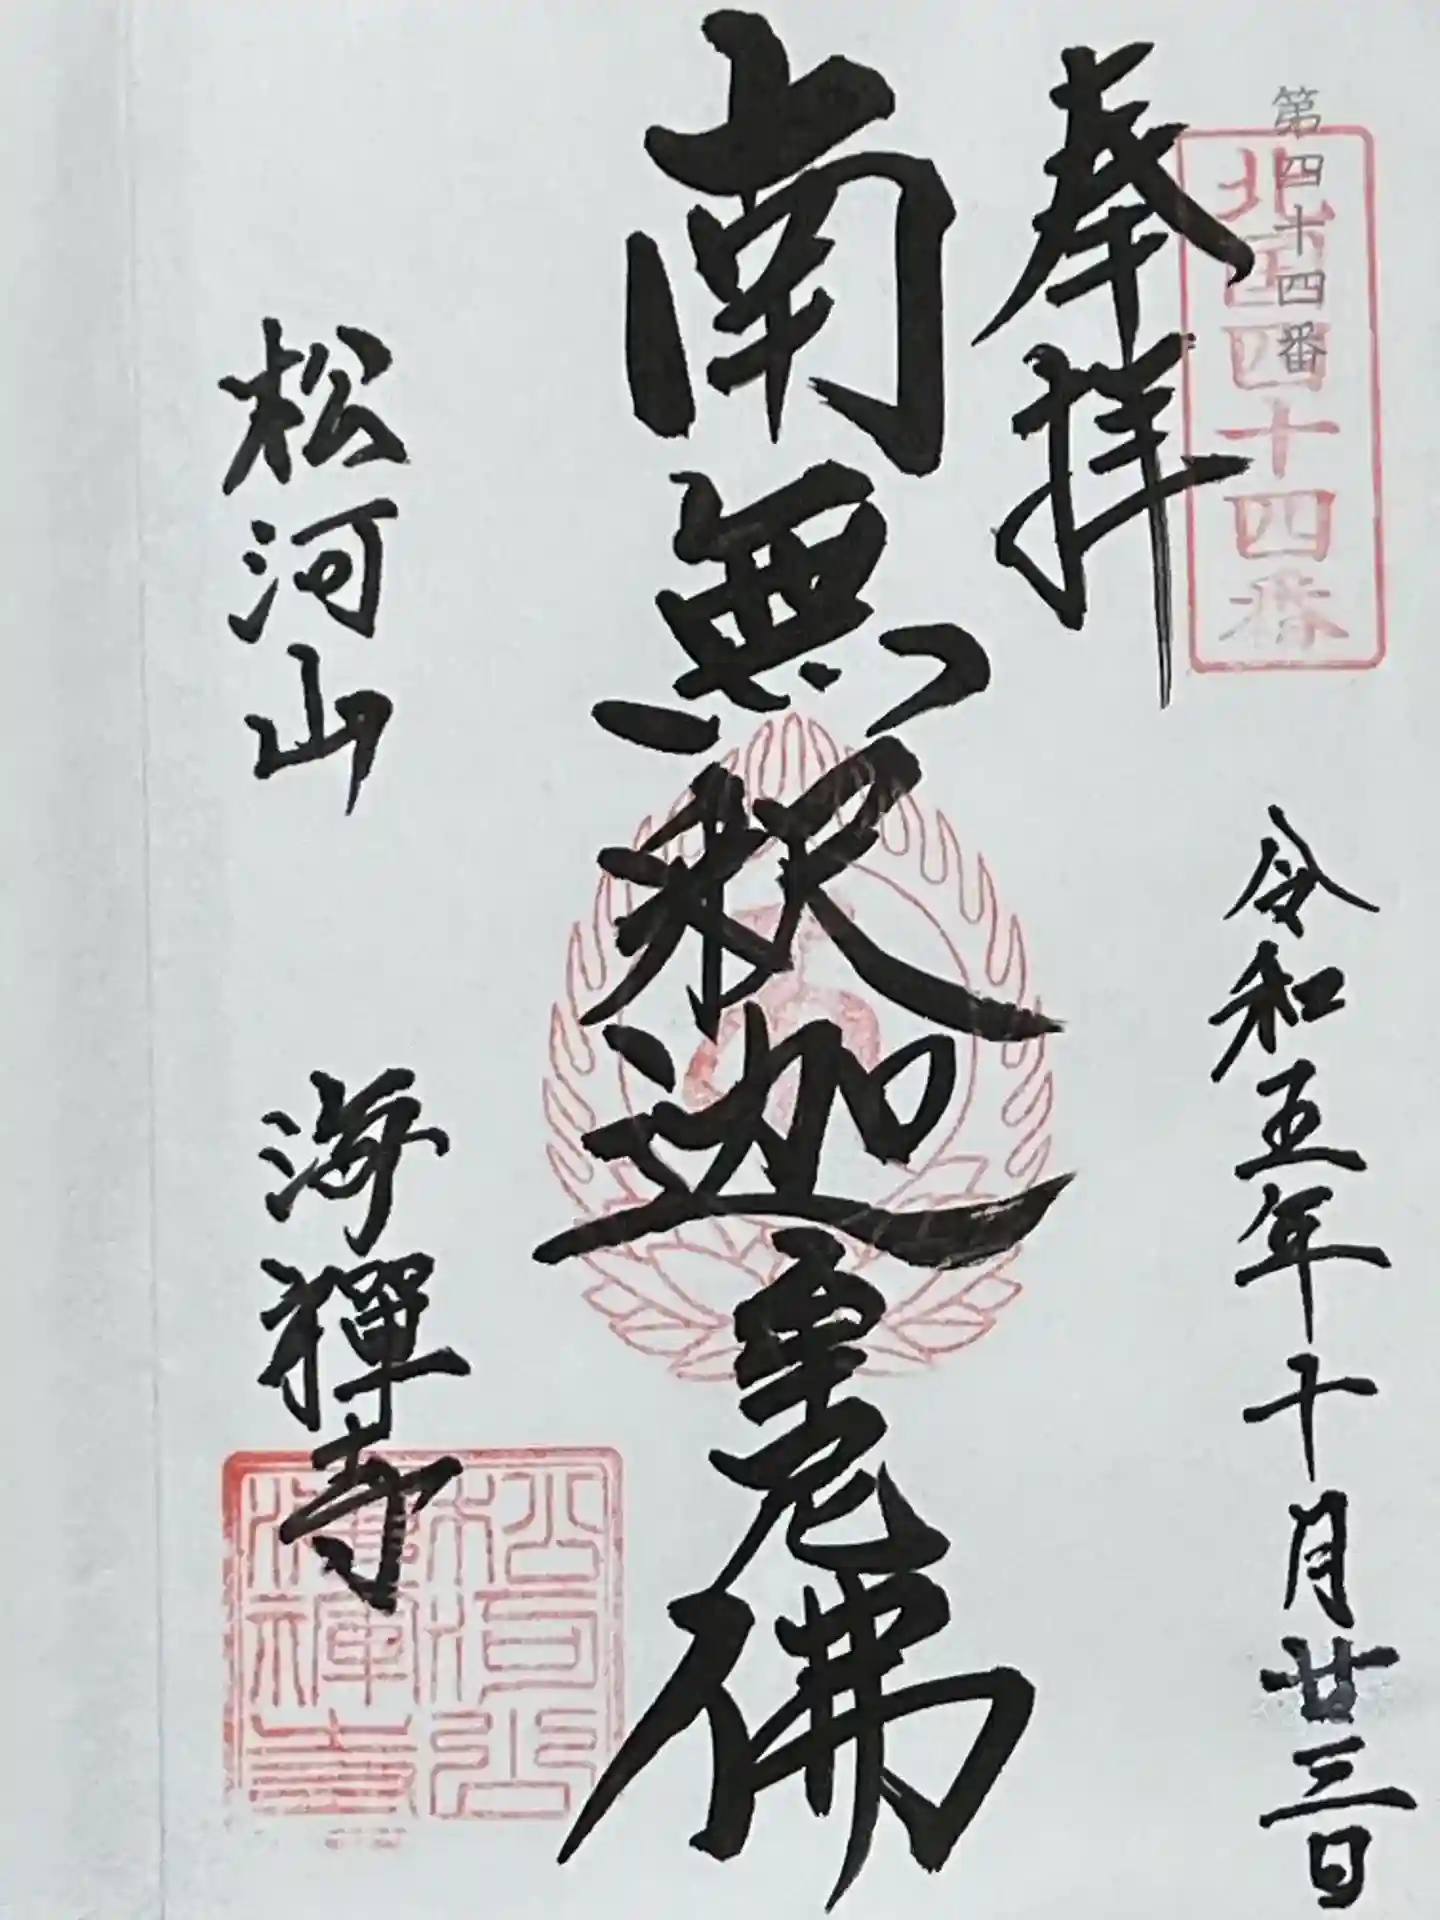 第四十四番
北国四十四番
奉拝
令和五年十月廿三日
南無釈迦牟尼佛
松河山
海禪寺
松河山
海禪寺